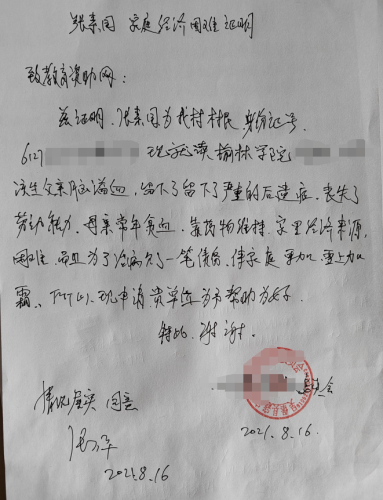 张素国 家庭经济困难证明
致教育资助网：
兹证明，张素国为我村村民 身份证号
6127 现就读榆林学院
该生父亲脑溢血，留下了留下了严重的后遗症，丧失了
劳动能力、母亲常年贫血，靠药物维持，家里经济来源
困难，而且为了治病欠了一笔债务，使家庭更加雪上加
霜、所以，现申请贵单位给予帮助为好
特此，谢谢。
情况属实 同意
2021.8.16
2021.8.16